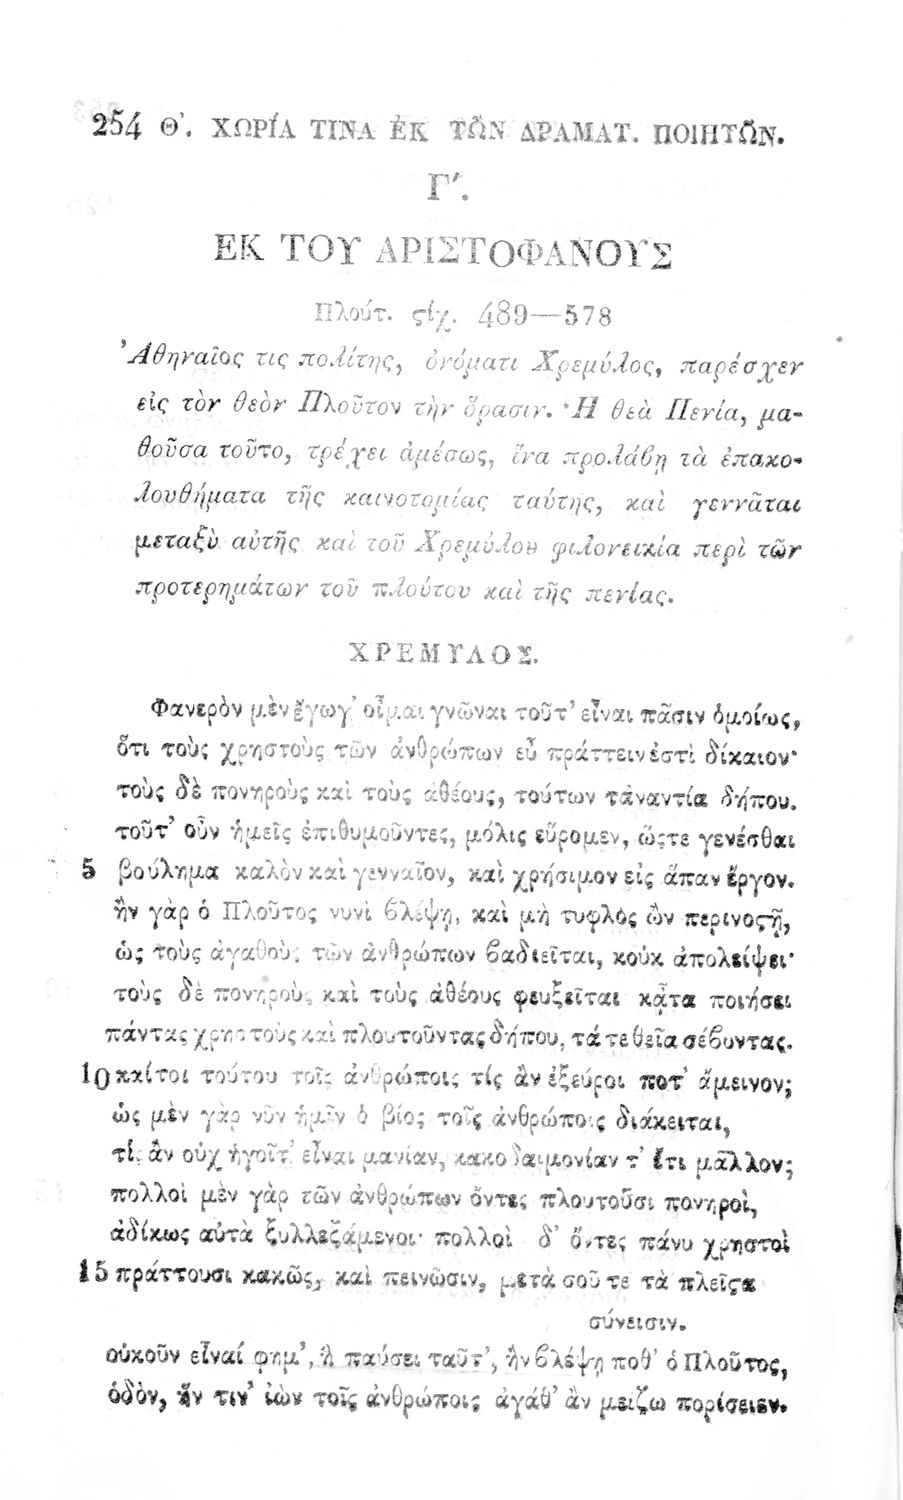 254 Θ'. ΧΩΡΊΑ ΤΙΝΑ ἘΚ ΤΩ͂Ν ΔΡΑΜΑΤ. ΠΟΙΗΤΩ͂Ν.
Γ'.
ΕΚ ΤΟΥ ΑΡΙΣΤΟΦΑΝΟΥΣ
Πλούτ. ϛίχ. 489—578
Ἀθηναῖος τις πολίτης, ὀνόματι Χρεμύλος, παρέσχεν
εἰς τὸν θεὸν Πλοῦτον τὴν ὅρασιν. Ἡ θεὰ Πενία, μα-
θοῦσα τοῦτο, τρέχει ἀμέσως, ἵνα προλάβῃ τὰ ἐπακο-
λουθήματα τῆς καινοτομίας ταύτης, καὶ γεννᾶται
μεταξὺ αὐτῆς καὶ τοῦ Χρεμύλου φιλονεικία περὶ τῶν
προτερημάτων τοῦ πλούτου καὶ τῆς πενίας.
ΧΡΕΜΥΛΟΣ.
Φανερὸν μὲν ἔγωγ' οἶμαι γνῶναι τοῦτ' εἶναι πᾶσιν ὁμοίως,
ὅτι τοὺς χρηστοὺς τῶν ἀνθρώπων εὖ πράττειν ἐστὶ δίκαιον·
τοὺς δὲ πονηροὺς καὶ τοὺς ἀθέους, τούτων τἀναντία δήπου.
τοῦτ' οὖν ἡμεῖς ἐπιθυμοῦντες, μόλις εὕρομεν, ὥϛε γενέσθαι
5 βούλημα καλὸν καὶ γενναῖον, καὶ χρήσιμον εἰς ἅπαν ἔργον.
ἢν γὰρ ὁ Πλοῦτος νυνὶ βλέψῃ, καὶ μὴ τυφλὸς ὢν περινοϛῇ,
ὡς τοὺς ἀγαθοὺς τῶν ἀνθρώπων βαδιεῖται, κοὐκ ἀπολείψει·
τοὺς δὲ πονηροὺς καὶ τοὺς ἀθέους φευξεῖται κᾆτα ποιήσει
πάντας χρηστοὺς καὶ πλουτοῦντας δήπου, τά τε θεῖα σέβοντας.
10 καίτοι τούτου τοῖς ἀνθρώποις τίς ἂν ἐξεύροι ποτ' ἄμεινον;
ὡς μὲν γὰρ νῦν ἡμῖν ὁ βίος τοῖς ἀνθρώποις διάκειται,
τίς ἂν οὐχ ἡγοῖτ' εἶναι μανίαν, κακοδαιμονίαν τ' ἔτι μᾶλλον;
πολλοὶ μὲν γὰρ τῶν ἀνθρώπων ὄντες πλουτοῦσι πονηροὶ,
ἀδίκως αὐτὰ ξυλλεξάμενοι· πολλοὶ δ' ὄντες πάνυ χρηστοὶ
15 πράττουσι κακῶς, καὶ πεινῶσιν, μετὰ σοῦ τε τὰ πλεῖϛα
σύνεισιν.
οὐκοῦν εἶναί φημ', ἢ παύσει ταῦτ', ἢν βλέψῃ ποθ' ὁ Πλοῦτος,
ὁδὸν, ἥν τιν' ἰὼν τοῖς ἀνθρώποις ἀγάθ' ἂν μείζω πορίσειεν.